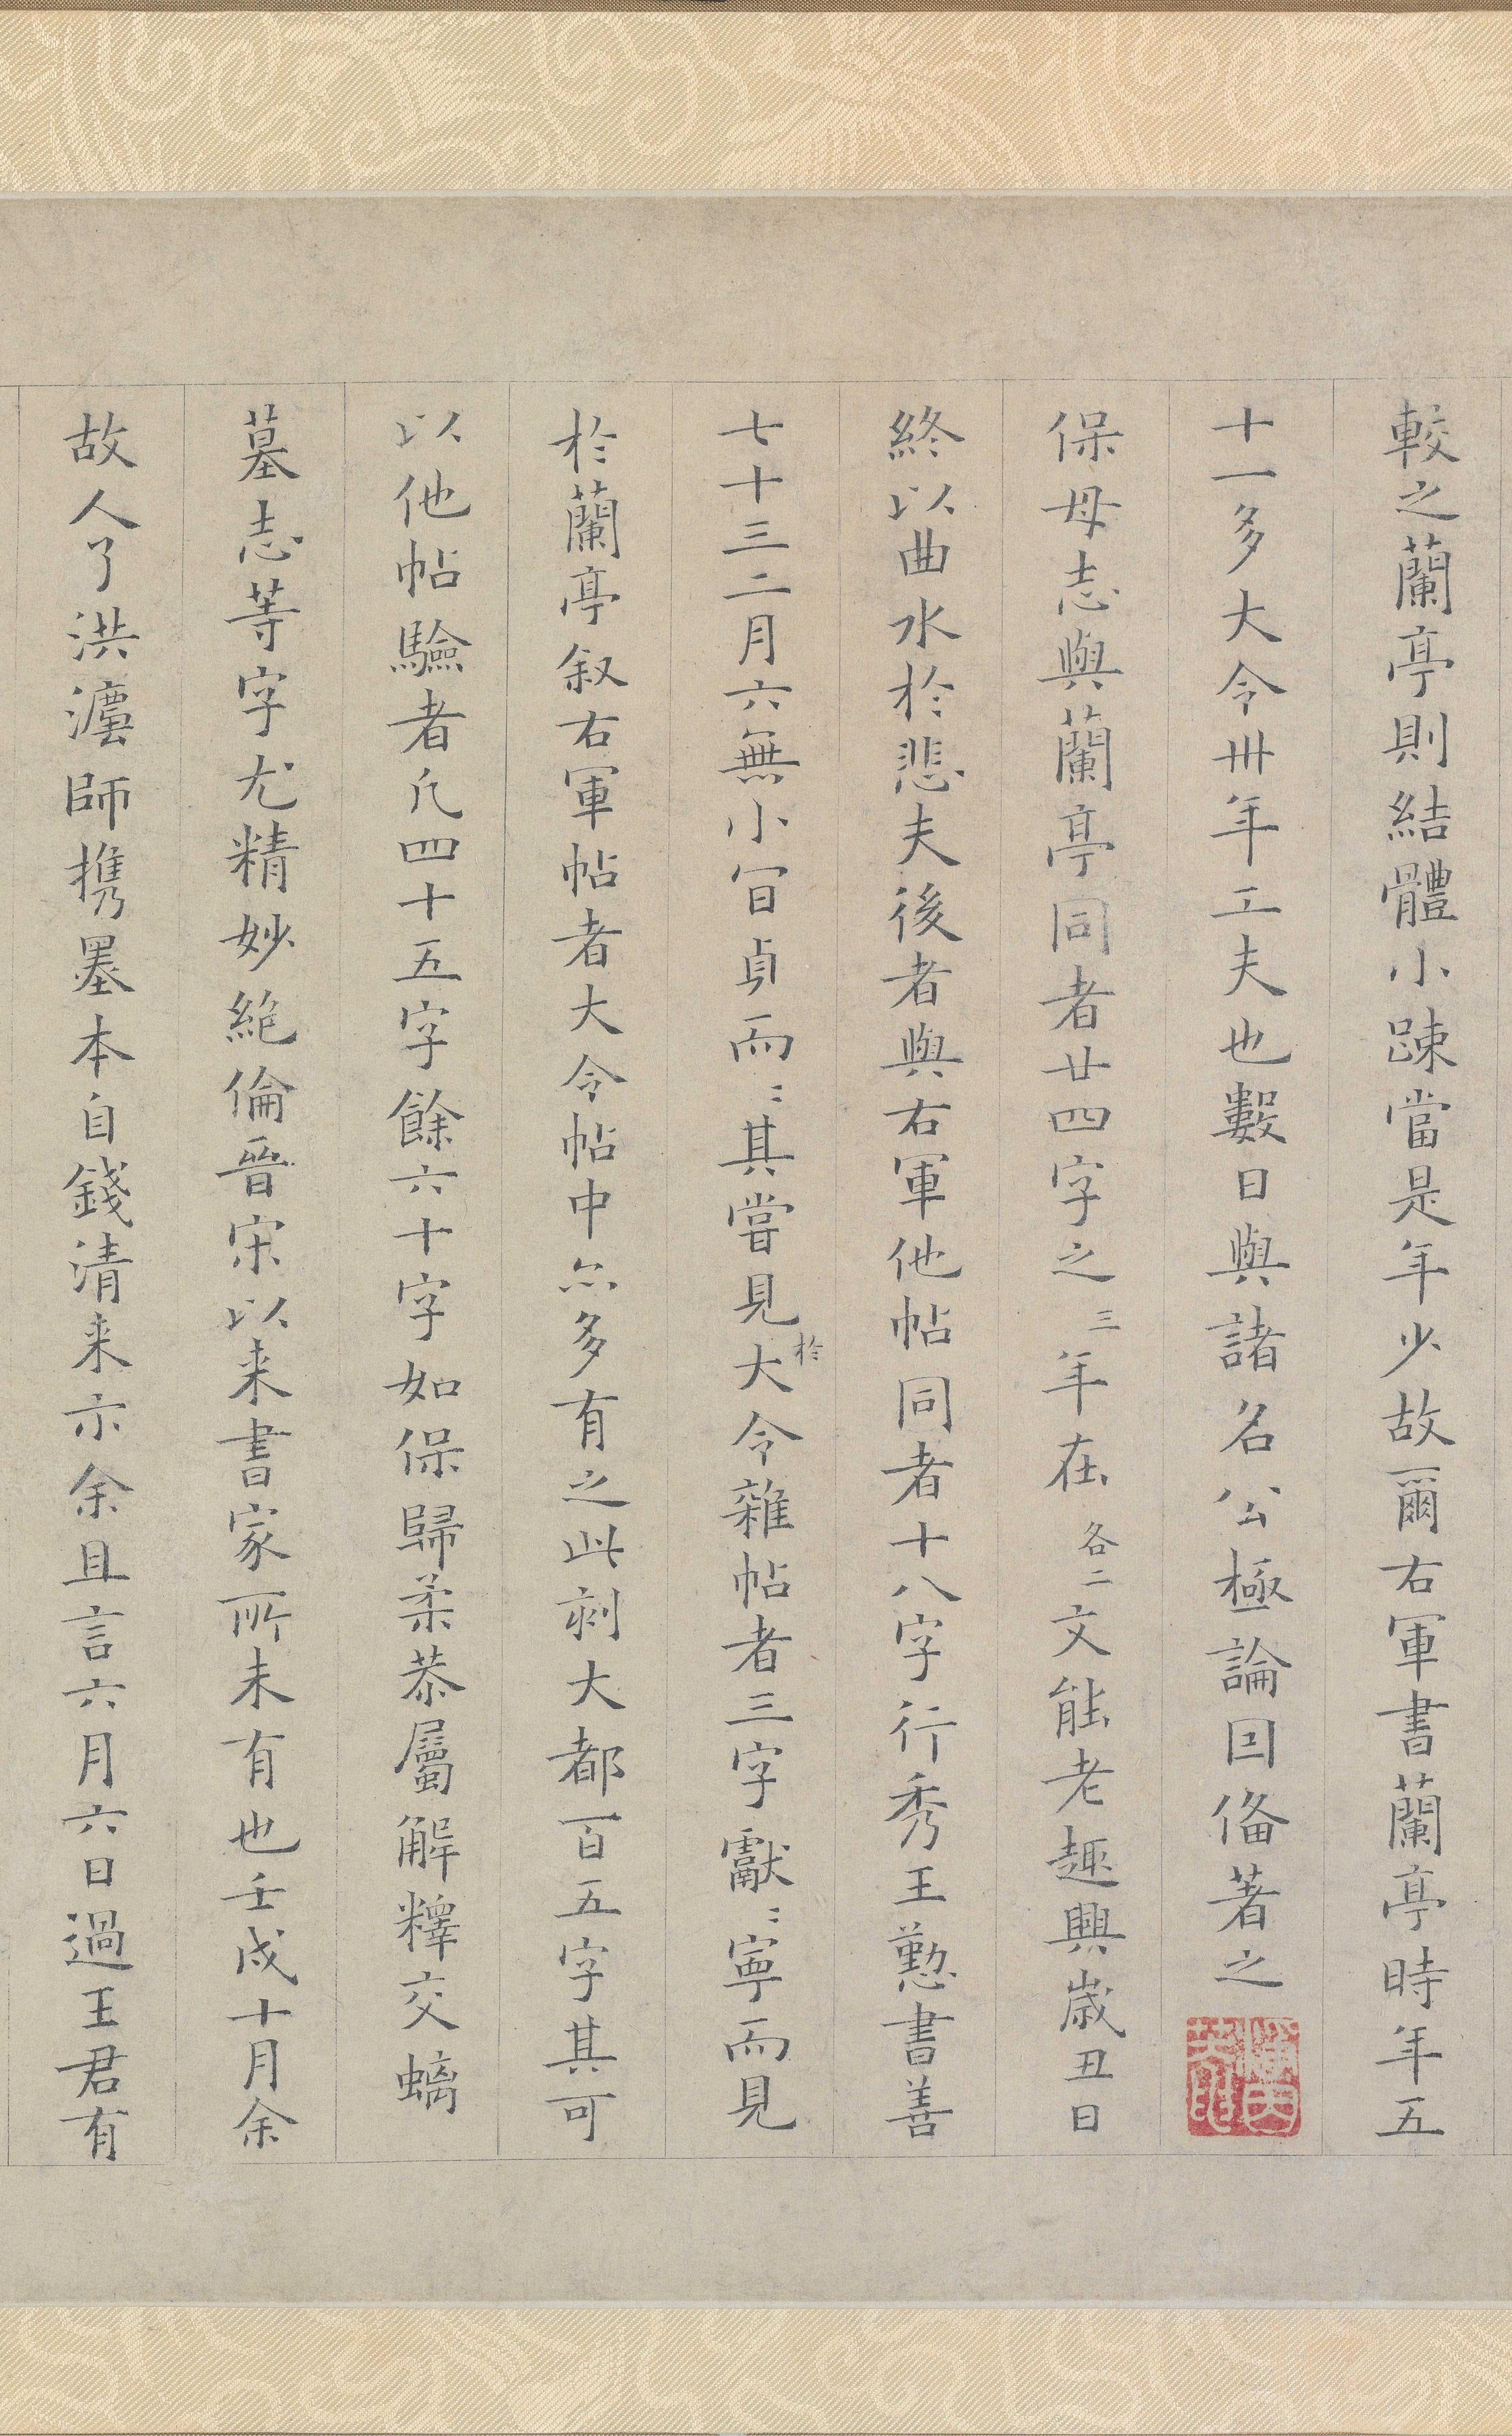 較之蘭亭則結體小踈當是年少故爾右軍書蘭亭時年五
十一多大令卅年工夫也數日與諸名公極論因俻著之
保母志與蘭亭同者廿四字之三年在各二文能老趣興歲丑日
終以曲水於悲夫後者與右軍他帖同者十八字行秀王懃書善
七十三二月六無小冝貞而〻其嘗見於大令雜帖者三字獻〻寧而見
於蘭亭叙右軍帖者大令帖中亦多有之此刻大都百五字其可
以他帖驗者凡四十五字餘六十字如保歸柔恭屬解釋交螭
墓志等字尤精妙絶倫晉宋以来書家所未有也壬戌十月余
故人了洪灋師携墨本自錢清来示余且言六月六日過王君有